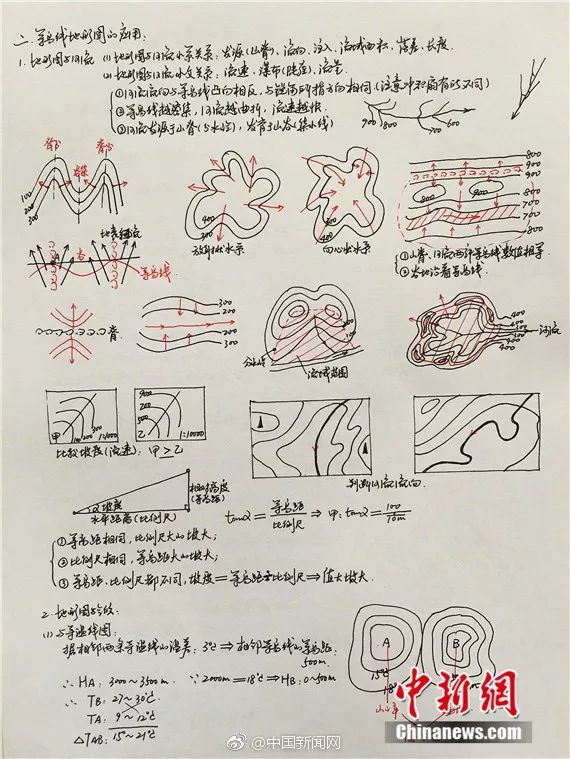 二、等高线地形图的应用:
1. 地形图与河流 (1) 地形图与河流水系关系: 发源(山脊)、流向、注入、流域面积、落差、长度.
(2) 地形图与河流水文关系: 流速、瀑布(陡崖)、流量
①河流流向与等高线凸向相反,与
方向相同(注意冲积扇有所不同)
②等高线越密集,河流越曲折,流速越快.
③河流发源于山脊(分水岭),发育于山谷(集水线)
900 800 700 600
100
200
300
放射状水系
向心状水系
800
900
800
700
700
800
①山脊、河流两侧等高线数值相等
等高线
脊
300
200
200
300
分水岭
流域范围
400
400
400
400
河流
甲
100 200 300
1:1000
900
500
200
乙
1:10000
比较坡度(流速): 甲>乙
判断河流流向
α坡度
相对高度
(等高距)
水平距离(比例尺)
tanα = 等高距/比例尺 ⇒ 甲: tanα = 100/10m
①等高距相同,比例尺大的坡大;
②比例尺相同,等高距大的坡大;
③等高距、比例尺都不同,坡度=等高距×比例尺⇒值大坡大.
2. 地形图与气候:
(1) 与等温线图:
据相邻两条等温线的温差: 3℃⇒相邻等高线的等高距:
500m.
∴ HA: 3000~3500m. ∵ 2000m=18℃⇒HB: 0~500m
∴ TB: 27~30℃
TA: 9~12℃
ΔTAB: 15~21℃
A
B
15℃
18℃
中新网
Chinanews.com
@中国新闻网